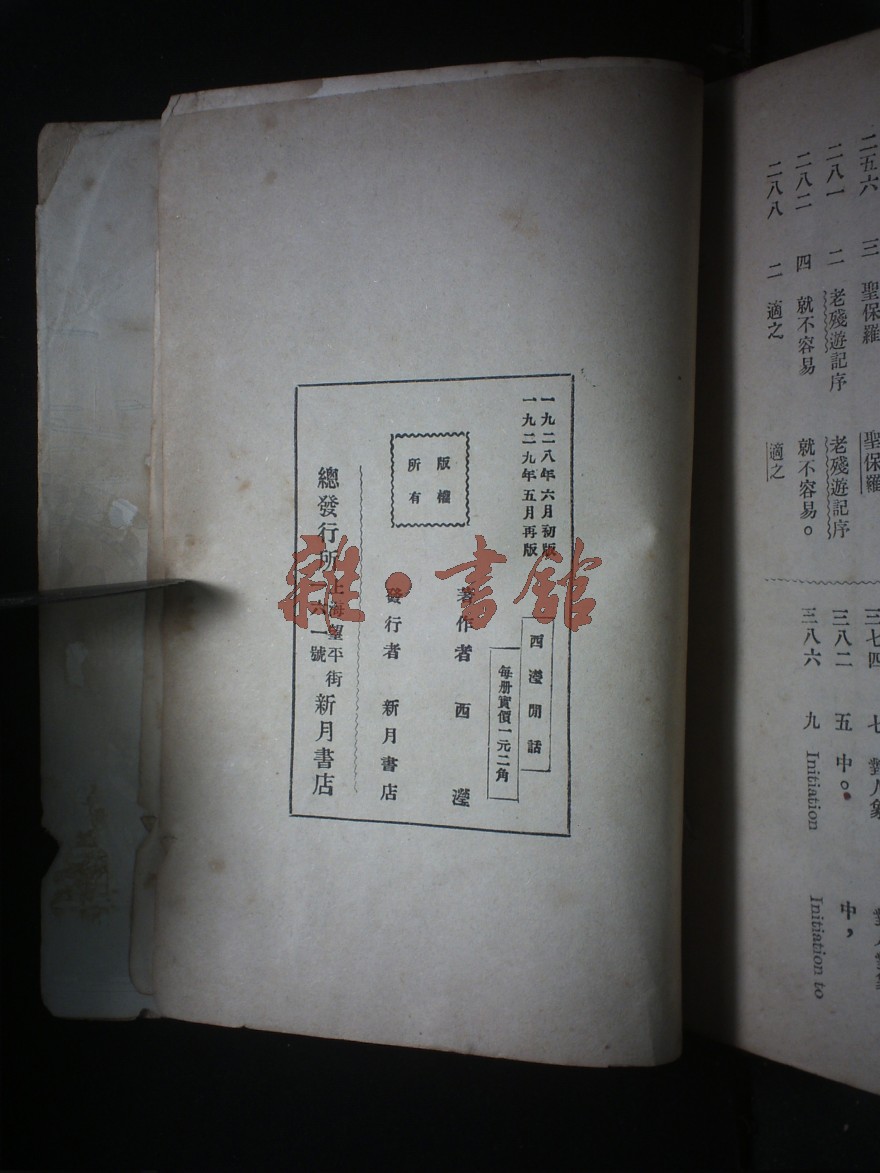 一九二八年六月初版
一九二九年五月再版
西瀅閒話
每册實價一元二角
版權
所有
著作者 西瀅
發行者 新月書店
總發行所 上海望平街一六一號 新月書店
雜·書館
二五六 三 聖保羅 聖保羅
二八一 二 老殘遊記序 老殘遊記序
二八二 四 就不容易 就不容易。
二八八 二 適之 適之
三七四 七
三八二 五 中。 中，
三八六 九 Initiation Initiation to